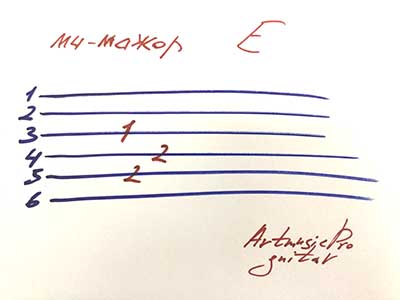 ми-мажор E
1
2
3 1
4 2
5 2
6
ArtmusicPro
guitar